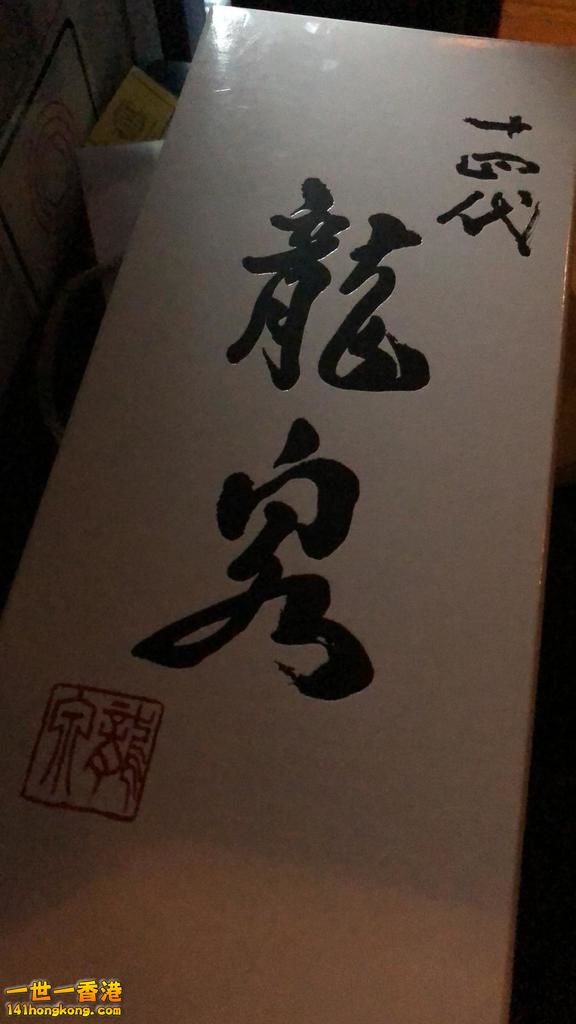 十四代
龍泉
龍泉
一世一香港
141hongkong.com